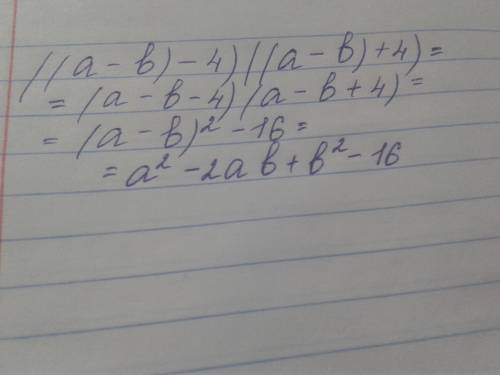 ((a - b) - 4)((a - b) + 4) =
= (a - b - 4)(a - b + 4) =
= (a - b)² - 16 =
= a² - 2ab + b² - 16